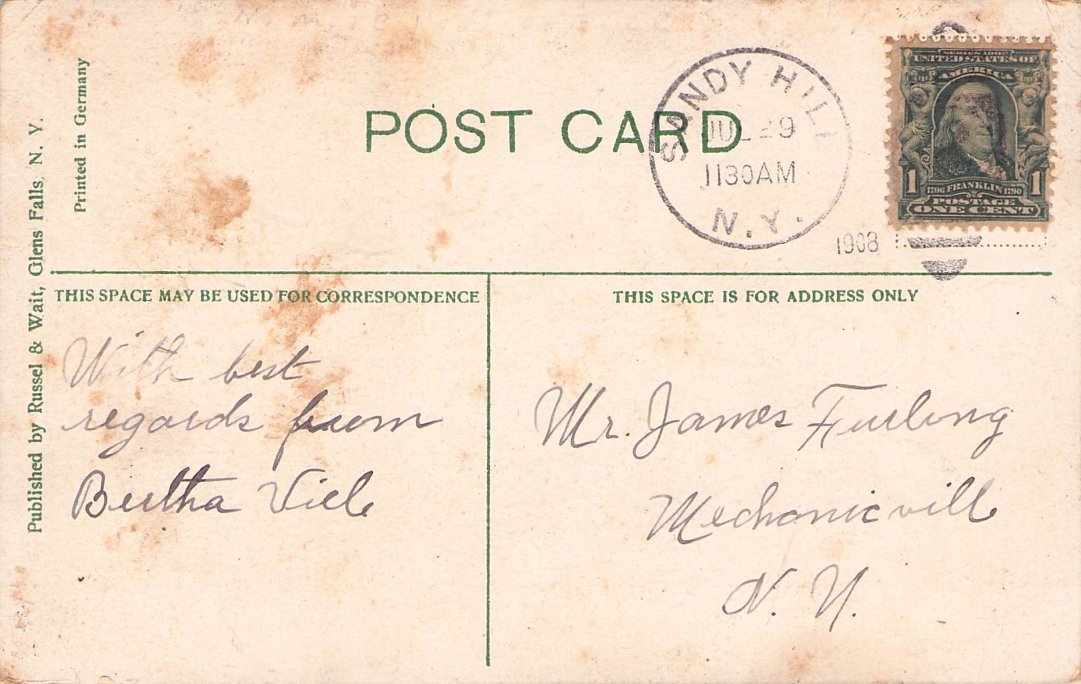 Printed in Germany
Published by Russel & Wait, Glens Falls, N. Y.
POST CARD
SANDY HILL
JUL 29
1130AM
N.Y.
1908
SERIES 1902
UNITED STATES OF
AMERICA
1 1
1706 FRANKLIN 1790
POSTAGE
ONE CENT
THIS SPACE MAY BE USED FOR CORRESPONDENCE
THIS SPACE IS FOR ADDRESS ONLY
With best
regards from
Bertha Viele
Mr. James Furlong
Mechanicville
N. Y.